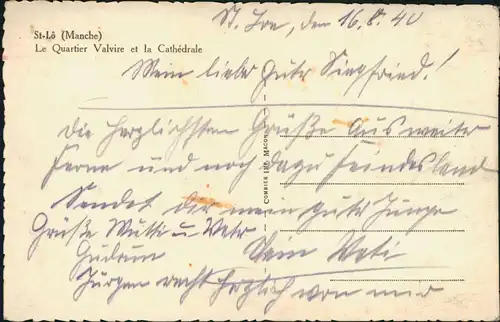 St-Lô (Manche)
Le Quartier Valvire et la Cathédrale
St. Loe, den 16.8.40
Mein lieber guter Siegfried!
Die herzlichsten Grüße aus weiter
Ferne und noch dazu Feindesland
Sendet dir mein guter Junge
Grüße Mutti u.
Gudrun Dein Vati
Jürgen recht herzlich von mir
COMBIER IMP. MACON